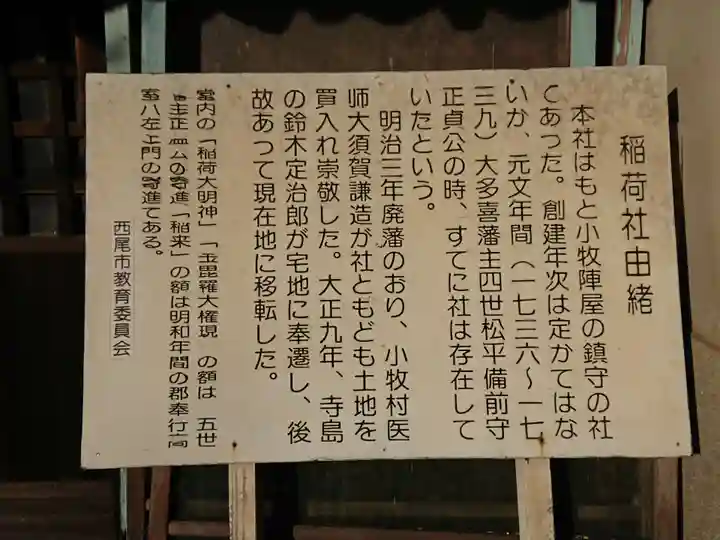 稲荷社由緒
本社はもと小牧陣屋の鎮守の社
であった。創建年次は定かてはな
いか、元文年間（一七三六〜一七
三九）大多喜藩主四世松平備前守
正貞公の時、すてに社は存在して
いたという。
明治三年廃藩のおり、小牧村医
师大須賀謙造が社ともども土地を
買入れ崇敬した。大正九年、寺島
の鈴木定治郎が宅地に奉遷し、後
故あって現在地に移転した。
宮内の「稲荷大明神」「玉毘羅大権現　の額は　五世
主正　公の寄進「稲来」の額は明和年間の郡奉行高
室八左ェ門の寄進てある。
西尾市教育委員会